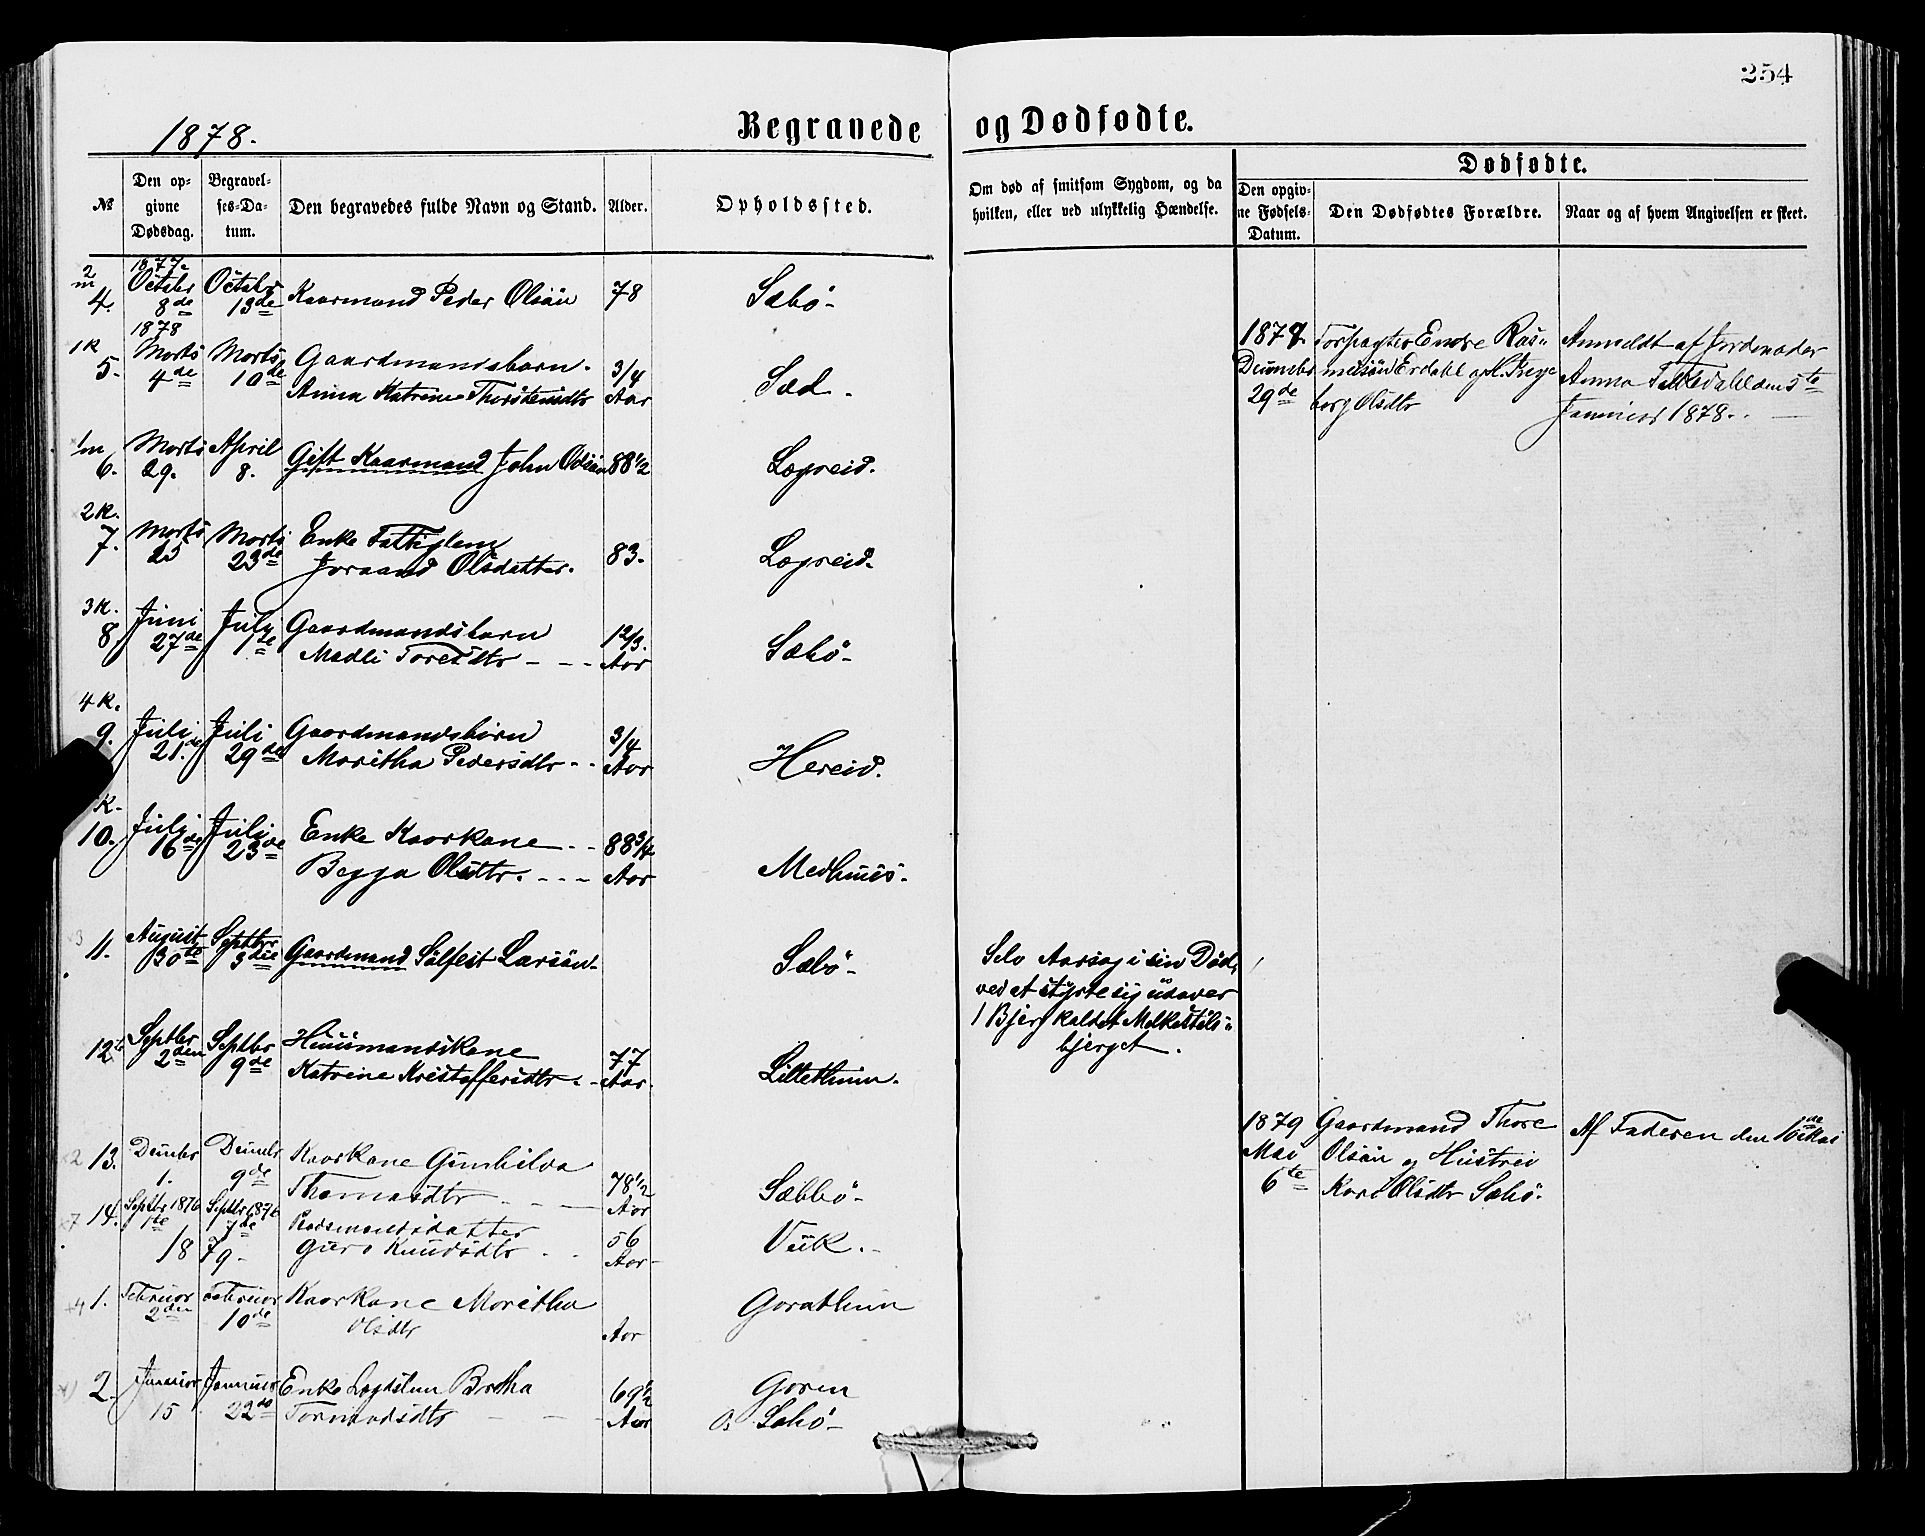 254
1878.
Begravede og Dødfødte.
№
Den op-
givne
Dødsdag.
Begravel-
ses-Da-
tum.
Den begravedes fulde Navn og Stand.
Alder.
Opholdssted.
Om død af smitsom Sygdom, og da
hvilken, eller ved ulykkelig Hændelse.
Dødfødte.
Den opgiv-
ne Fødsels-
Datum.
Den Dødfødtes Forældre.
Naar og af hvem Angivelsen er skeet.
2 m
4.
1877.
Octobr 8de
Octobr 13de
Kaarmand Peder Olsön
78
Sæbö-
1 k
5.
1878
Marts 4de
Marts 10de
Gaardmandsbarn.
Anna Katrine Thorsteinsdtr
3/4
Aar
Sæd.
1877
Decmbr
29de
Endre Ras-
Erdahl
borg Olsdtr
Anmeldt af Jordmoder
Anna den 5te
Januar 1878.
1 m
6.
Marts 29.
April 8.
Gift Kaarmand John Odsön
88 1/2
Lægreid.
2 k.
7.
Marts
Marts 23de
Enke Fattiglem
Joraand Olsdatter.
83.
Lægreid.
3 k.
8
Juni 27de
July 1te
Gaardmandsbarn
Madli Toresdtr
1 2/3.
Aar
Sæbö-
4 k.
9.
Juli 21.de
Juli 29de
Gaardmandsbarn
Maritha Pedersdtr
3/4
Aar
Hereid.
k.
10.
Juli 16de
Juli 23de
Enke Kaarkone
Begga Olsdtr.
88 3/4
Aar
Medhuus.
3
11.
August 30te
Septbr 3die
Gaardmand Sölfest Larsön
Sæbö-
Selv Aarsag i sin Död,
ved at styrte sig udover
1 Bjerg kaldet Melkestöls-
bjerget.
12te
Septbr 2den
Septbr 9de
Huusmandskone
Katrine Kristoffersdtr
77
Aar.
Lillethun.
13.
Decmbr
1.
Decmbr
9de
Kaarkone Gunhilda
Thomasdtr
78 1/2
Aar
Sæbbö-
1879
Mai
6te
Gaardmand Thore
Olsön og Hustru
Kari Olsdtr Sæbö.
Af Faderen den 16de Mai
14.
Septbr 1876
1te
Septbr 1876
7de
Guro Knudsdtr
56
Aar
Viik.
1879-
1.
Februar
2den
Februar
10de
Kaarkone Maritha
Olsdtr
Aar
Garathun
2.
Januar
15
Januar
22de
Enke Lægdslem Brtha
Tormodsdtr
69 1/2
Aar
Garen
Sæbö-